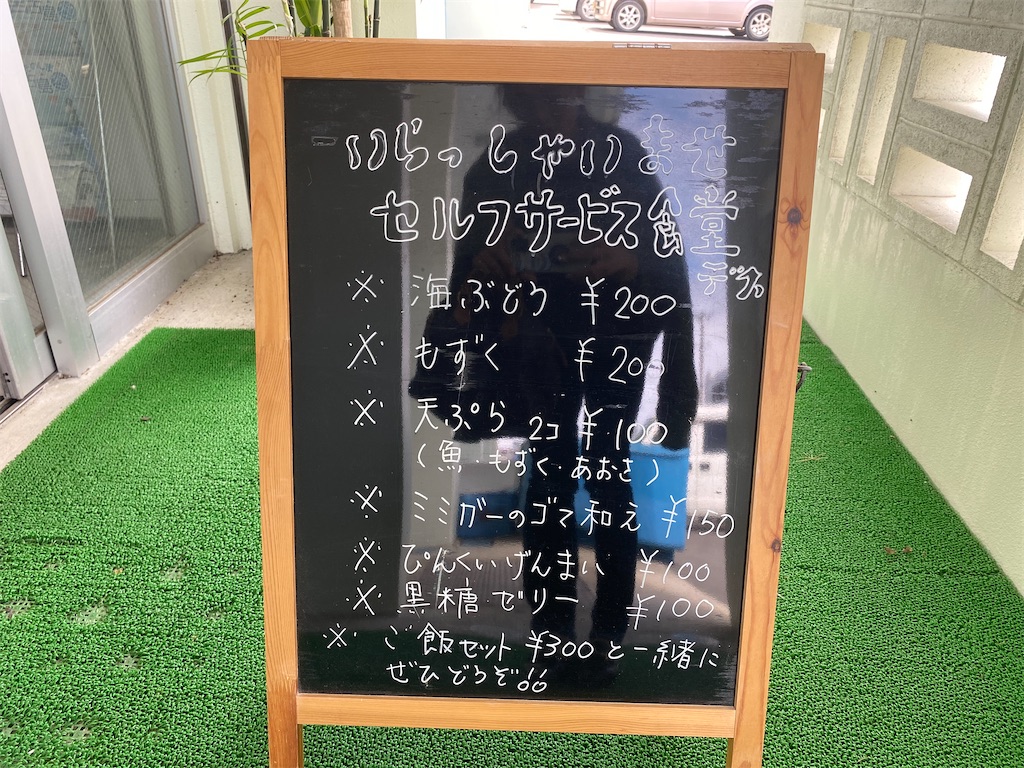 いらっしゃいませ
セルフサービス食堂
デス
※ 海ぶどう ¥200
※ もずく ¥200
※ 天ぷら 2コ ¥100
(魚・もずく・あおさ)
※ ミミガーのゴマ和え ¥150
※ ぴんくいげんまい ¥100
※ 黒糖ゼリー ¥100
※ ご飯セット ¥300と一緒に
ぜひどうぞ!!